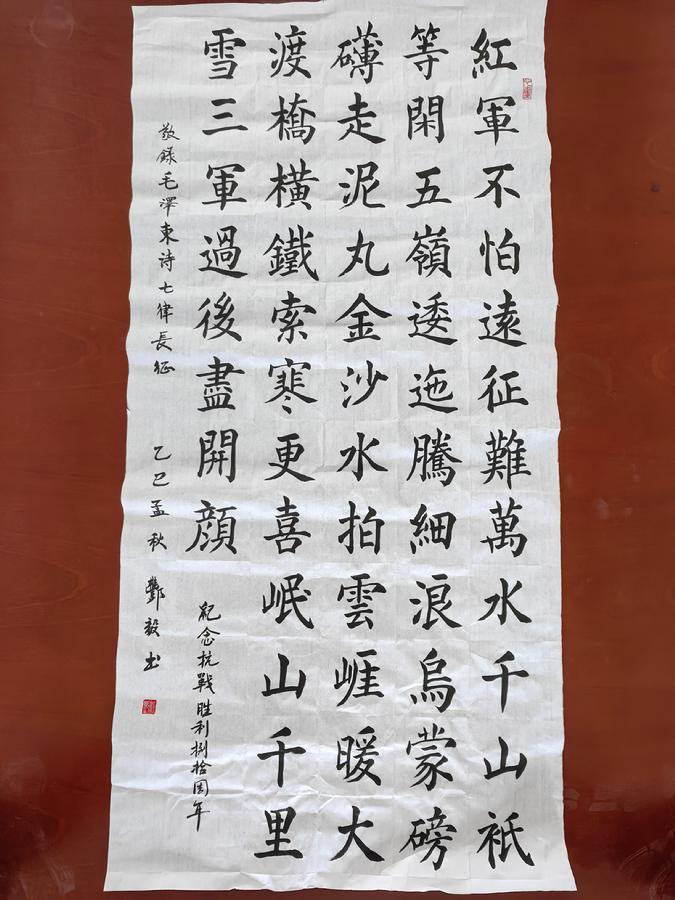 紅軍不怕遠征難萬水千山祇
等閑五嶺逶迤騰細浪烏蒙磅
礴走泥丸金沙水拍雲崕暖大
渡橋橫鐵索寒更喜岷山千里
雪三軍過後盡開顔
紀念抗戰胜利捌拾周年
敬録毛澤東诗七律長征
乙巳孟秋 鄧毅书